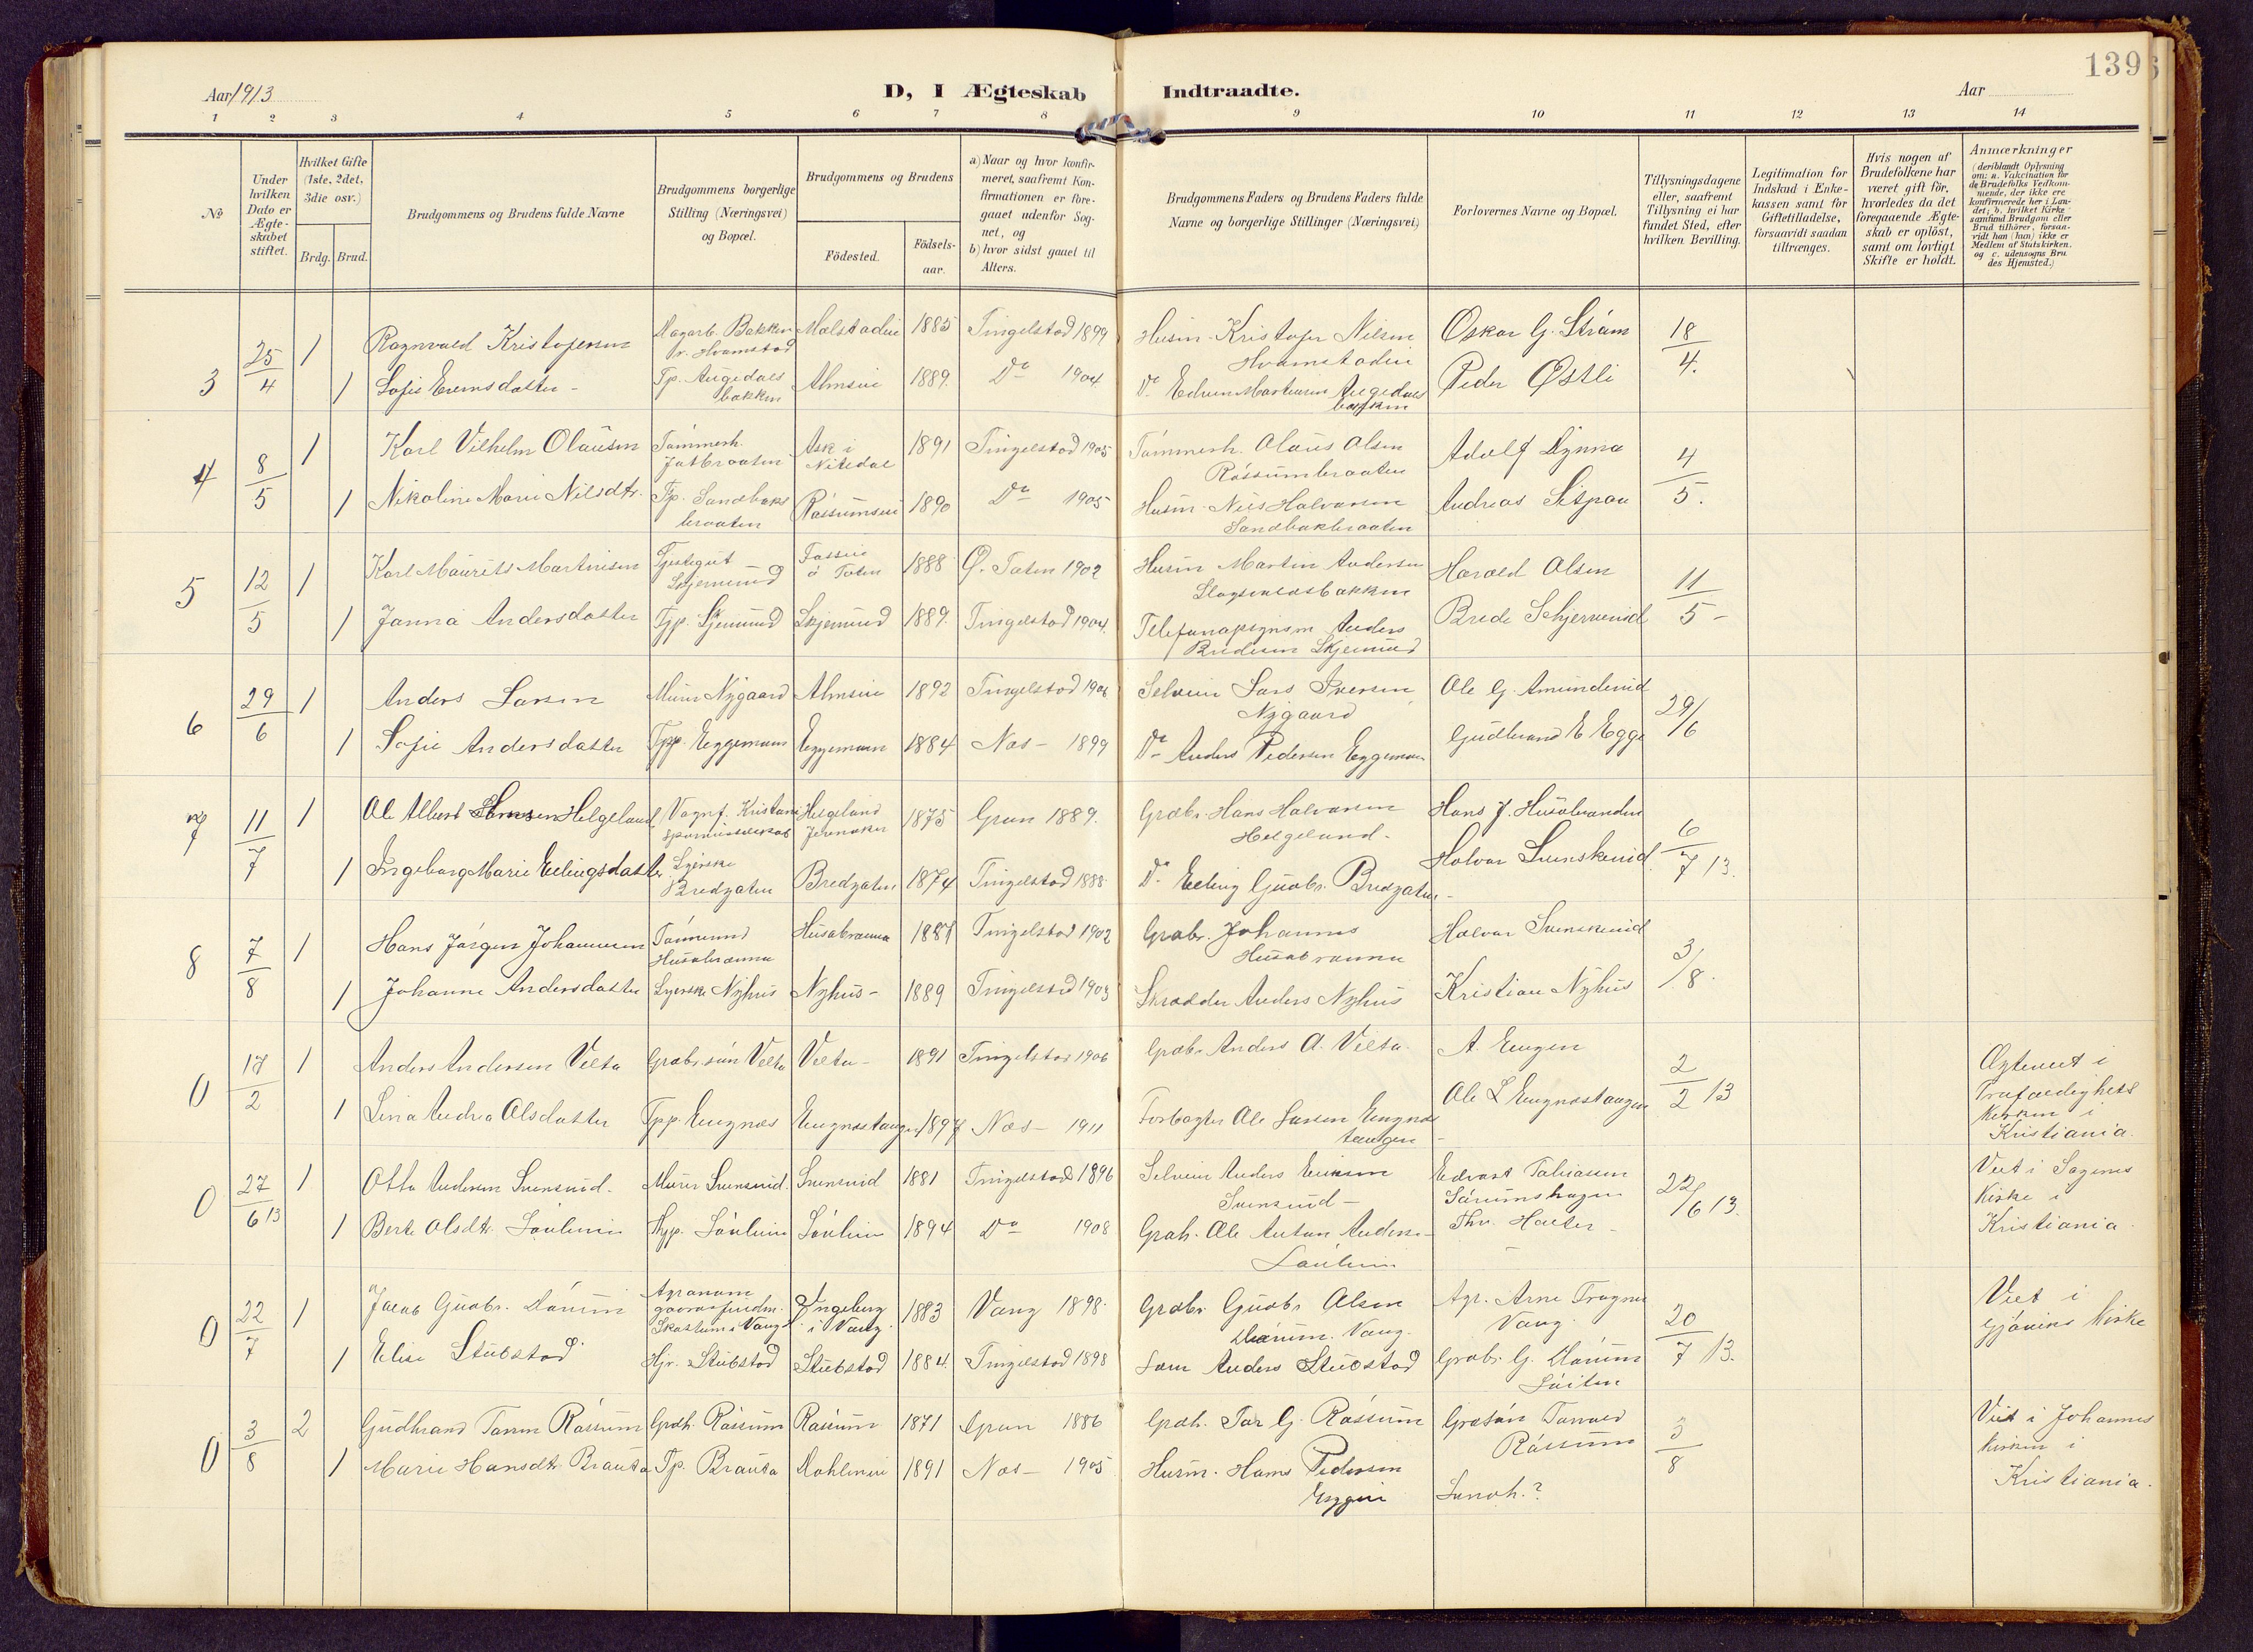 139
Aar 1913
D, I Ægteskab Indtraadte.
Aar
1 2 3 4 5 6 7 8 9 10 11 12 13 14
No
Under hvilken Dato er Ægteskabet stiftet.
Hvilket Gifte (1ste, 2det, 3die osv.)
Brdg. Brud.
Brudgommens og Brudens fulde Navne
Brudgommens borgerlige Stilling (Næringsvei) og Bopæl.
Brudgommens og Brudens
Fødested.
Fødsels-aar.
a) Naar og hvor konfirmeret, saafremt Konfirmationen er foregaaet udenfor Sognet, og
b) hvor sidst gaaet til Alters.
Brudgommens Faders og Brudens Faders fulde Navne og borgerlige Stillinger (Næringsvei)
Forlovernes Navne og Bopæl.
Tillysningsdagene eller, saafremt Tillysning ei har fundet Sted, efter hvilken Bevilling.
Legitimation for Indskud i Enkekassen samt for Giftetilladelse, forsaavidt saadan tiltrænges.
Hvis nogen af Brudefolkene har været gift før, hvorledes da det foregaaende Ægteskab er opløst, samt om lovligt Skifte er holdt.
Anmærkninger (deriblandt Oplysning om: a. Vakcination for de Brudefolks Vedkommende, der ikke ere konfirmerede her i Landet; b. hvilket Kirkesamfund Brudgom eller Brud tilhører, forsaavidt han (hun) ikke er Medlem af Statskirken. og c. udensogns Brudes Hjemsted.)
3 25/4 1 Ragnvald Kristofersen Bakken v. Hvamstad Molstadeie 1885 Tingelstad 1899 Husm. Kristofer Nilsen Hvamstadeie Oskar G. Strøm 18/4.
1 Sofie Evensdatter - Tp. Augedalsbakken Almseie 1889. Do 1904. Do Edvin Martinsen Augedalsbakken Peder Østli
4 8/5 1 Karl Vilhelm Olausen Tømmerh. Ask i Nitedal 1891 Tingelstad 1905 Tømmerh. Olaus Olsen Røssumbraaten Adolf Dynna 4/5.
1 Nikoline Marie Nilsdtr. Tp. Sandbakbraaten Røssumseie 1890 Do 1905 Husm. Nils Halvorsen Sandbakbraaten Andreas
5 12/5 1 Karl Maurits Martinsen Tjestegut ø Toten 1888 Ø. Toten 1902 Husm Martin Andersen Harald Olsen 11/5 -
1 Janna Andersdatter Tjp. Skjerund Skjerund 1889. Tingelstad 1904. Anders Bredesen Brede
6 29/6 1 Anders Larsen Murer Nygaard Almseie 1892 Tingelstad 1906 Selveier Lars Iversen Nygaard Ole G. Amundrud 29/6
1 Sofie Andersdatter Tpp. Eggemoen Eggemoen 1884 Næs - 1899 Do Anders Pedersen Eggemoen Gudbrand E Egge
7 11/7 1 Ole Albert Hansen Helgeland Vognf. Kristania Helgeland Jevnaker 1875 Gran 1889. Grdbr. Hans Halvorsen Helgeland - Hans J. Husabrænden 6/7 13.
1 Ingeborg Marie Erlingsdatter Syerske Bredgaten Bredgaten 1874 Tingelstad 1888 Do Erling Gudbr. Bredgaten - Halvor Svenskerud
8 7/8 1 Hans Jørgen Johannesen Husabrænna Husabrænna 1887 Tingelstad 1902 Grdbr. Johannes Husabrænna Halvor Svenskerud 3/8.
1 Johanne Andersdatter Syerske Nyhus Nyhus - 1889 Tingelstad 1903 Skrædder Anders Nyhus Kristian Nyhus
0 17/2 1 Anders Andersen Velta Grdbr.søn Velta Velta - 1891 Tingelstad 1906 Grdbr Anders A. Velta. A. Engen 2/2 13 Ægteviet i Trefoldighets Kirken i Kristiania.
1 Lina Andrea Olsdatter Tpp. Engnæs Engnæstangen 1897 Næs - 1911 Forpagter Ole Larsen Engnæstangen - Ole L Engnæstangen
0 27/6 13 1 Otto Andersen Svensrud. Murer Svensrud. Svensrud 1881 Tingelstad 1896 Selveier Anders Eriksen Svensrud - Edvart Tobiassen 22/6 13. Viet i Sagenes Kirke i Kristiania.
1 Berte Olsdtr. 1894 Do 1908 Ole Anton Anders- Thv. -
0 22/7 1 Jacob Gudbr. Agronom i Vang Ingeberg i Vang 1883 Vang 1898. Grdbr. Gudbr Olsen Vang. Agr. Arne Vang. 20/7 13. Viet i Gjøviks Kirke
1 Elise Stubstad Hjv. Stubstad Stubstad 1884. Tingelstad 1898 Anders Stubstad Grdbr. G. Løiten
0 3/8 2 Gudbrand Røssum Grdb. Røssum Røssum 1871 Gran 1886 Grdb. Tor G. Røssum Torvald Røssum 3/8 Viet i Johannes kirken i Kristiania.
1 Marie Hansdtr. Tp. Dahleneie 1891 Næs - 1905 Husm. Hans Pedersen ?